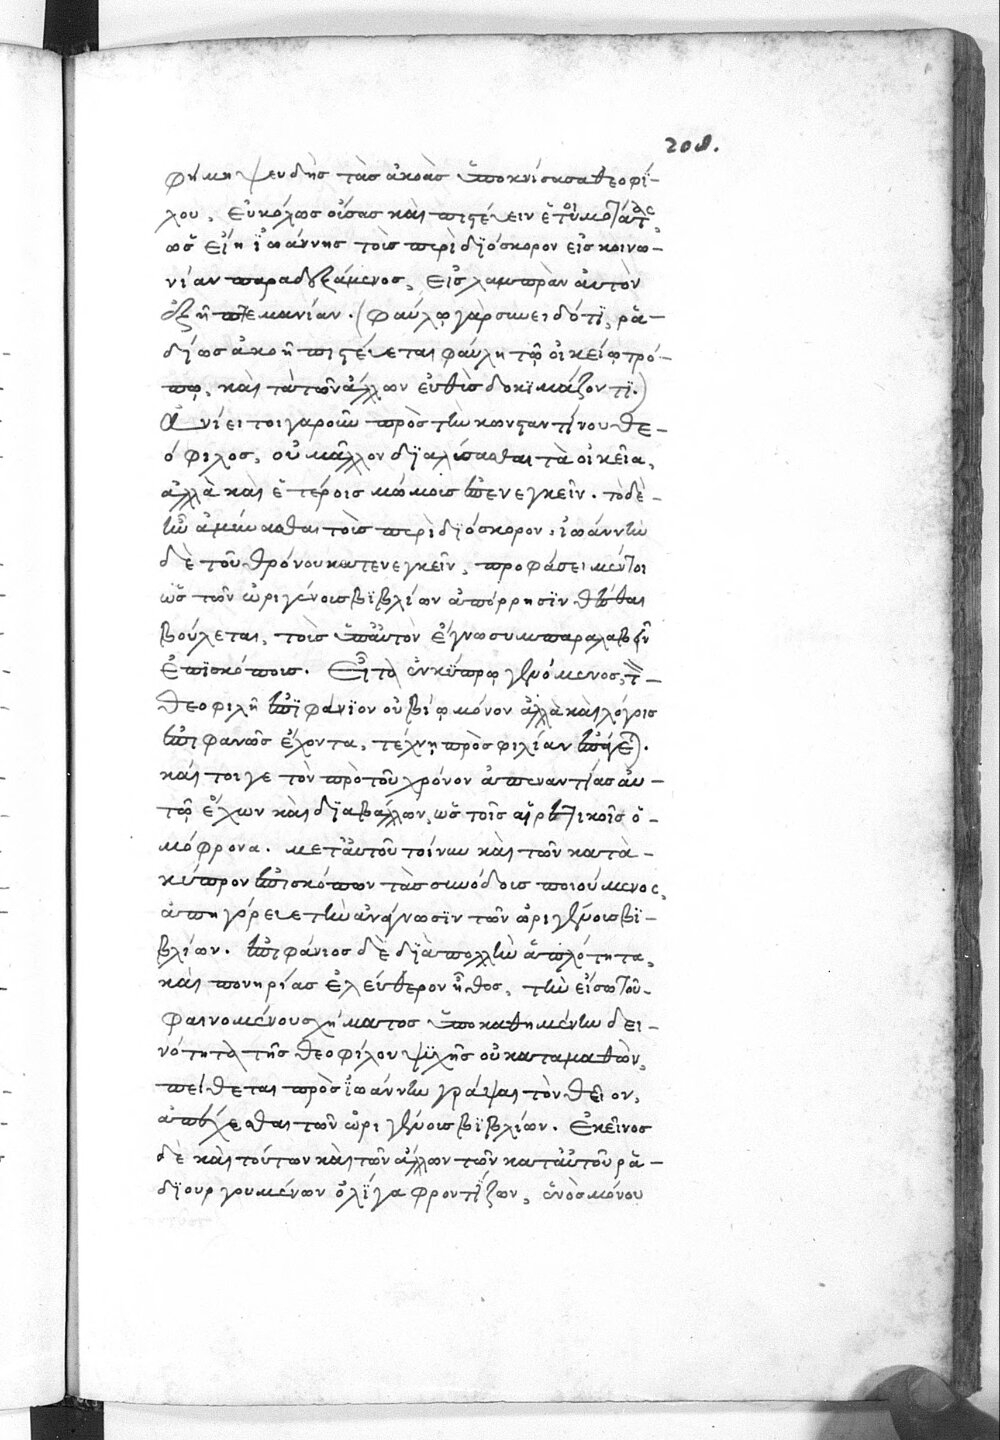 208.
φήμη ψευδὴς τὰς ἀκοὰς ὑποκνίσασα θεοφί-
λου, εὐκόλως οὔσας καὶ πιστεύειν ἑτοιμοτάτας,
ὡς εἴη ἰωάννης τοῖς περὶ διόσκορον εἰς κοινω-
νίαν παραδεξάμενος, εἰς λαμπρὰν αὐτὸν
ἐξῆπτε μανίαν. (φαύλῳ γὰρ συνειδότι, ρᾳ-
δίως ἀκοὴ πιστεύεται φαύλη τῷ οἰκείῳ τρό-
πῳ, καὶ τὰ τῶν ἄλλων εὐθὺς δοκιμάζοντι.)
Ἀνίει τοιγαροῦν πρὸς τὴν κωνσταντίνου θε-
όφιλος, οὐ μᾶλλον διαλύσασθαι τὰ οἰκεῖα,
ἀλλὰ καὶ ἑτέροις μώμοις ἐπενεγκεῖν. τὸ δὲ
ἦν ἀμύνασθαι τοῖς περὶ διόσκορον, ἰωάννην
δὲ τοῦ θρόνου κατενεγκεῖν, προφάσει μέντοι
ὡς τῶν ὠριγένους βιβλίων ἀπόρρησιν θέσθαι
βούλεται, τοῖς ὑπ' αὐτὸν ἔγνω συμπαραλαβεῖν
ἐπισκόποις. Εἶτα ἐν κύπρῳ γενόμενος, τ-
θεοφιλῆ ἐπιφάνιον οὐ βίῳ μόνον ἀλλὰ καὶ λόγοις
ἐπιφανῶς ἔχοντα, τέχνῃ πρὸς φιλίαν ἐπάγει.
καί τοι γε τὸν πρὸ τοῦ χρόνον ἀπεναντίας αὐ-
τῷ ἔχων καὶ διαβάλλων, ὡς τοῖς αἱρετικοῖς ὁ-
μόφρονα. μετ' αὐτοῦ τοίνυν καὶ τῶν κατὰ-
κύπρον ἐπισκόπων τὰς συνόδοις ποιούμενος,
ἀπηγόρευε τὴν ἀνάγνωσιν τῶν ὠριγένους βι-
βλίων. ἐπιφάνιος δὲ διὰ πολλὴν ἁπλότητα,
καὶ πονηρίας ἐλεύθερον ἦθος, τὴν εἴσω τοῦ-
φαινομένου σχήματος ὑποκαθημένην δει-
νότητα τῆς θεοφίλου ψυχῆς οὐ καταμαθὼν,
πείθεται πρὸς ἰωάννην γράψαι τὸν θεῖον,
ἀπέχεσθαι τῶν ὠριγένους βιβλίων. Ἐκεῖνος
δὲ καὶ τούτων καὶ τῶν ἄλλων τῶν κατ' αὐτοῦ ρᾳ-
διουργουμένων ὀλίγα φροντίζων, ἑνὸς μόνου